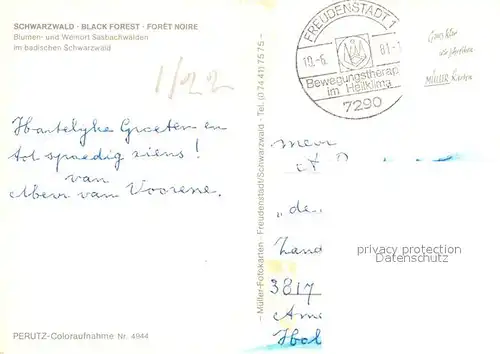 SCHWARZWALD · BLACK FOREST · FORÊT NOIRE
Blumen- und Weinort Sasbachwalden
im badischen Schwarzwald
1/22
Hartelyke Groeten en
tot spoedig ziens!
van
Mevr van Voorene.
PERUTZ-Coloraufnahme Nr. 4944
— Müller-Fotokarten - Freudenstadt/Schwarzwald - Tel. (0 74 41) 75 75 —
FREUDENSTADT 1
81-1
Bewegungstherap
im Heilklima
7290
MÜLLER Karten
Mevr
"de
Land
3817
Ame
Hol
privacy protection
Datenschutz